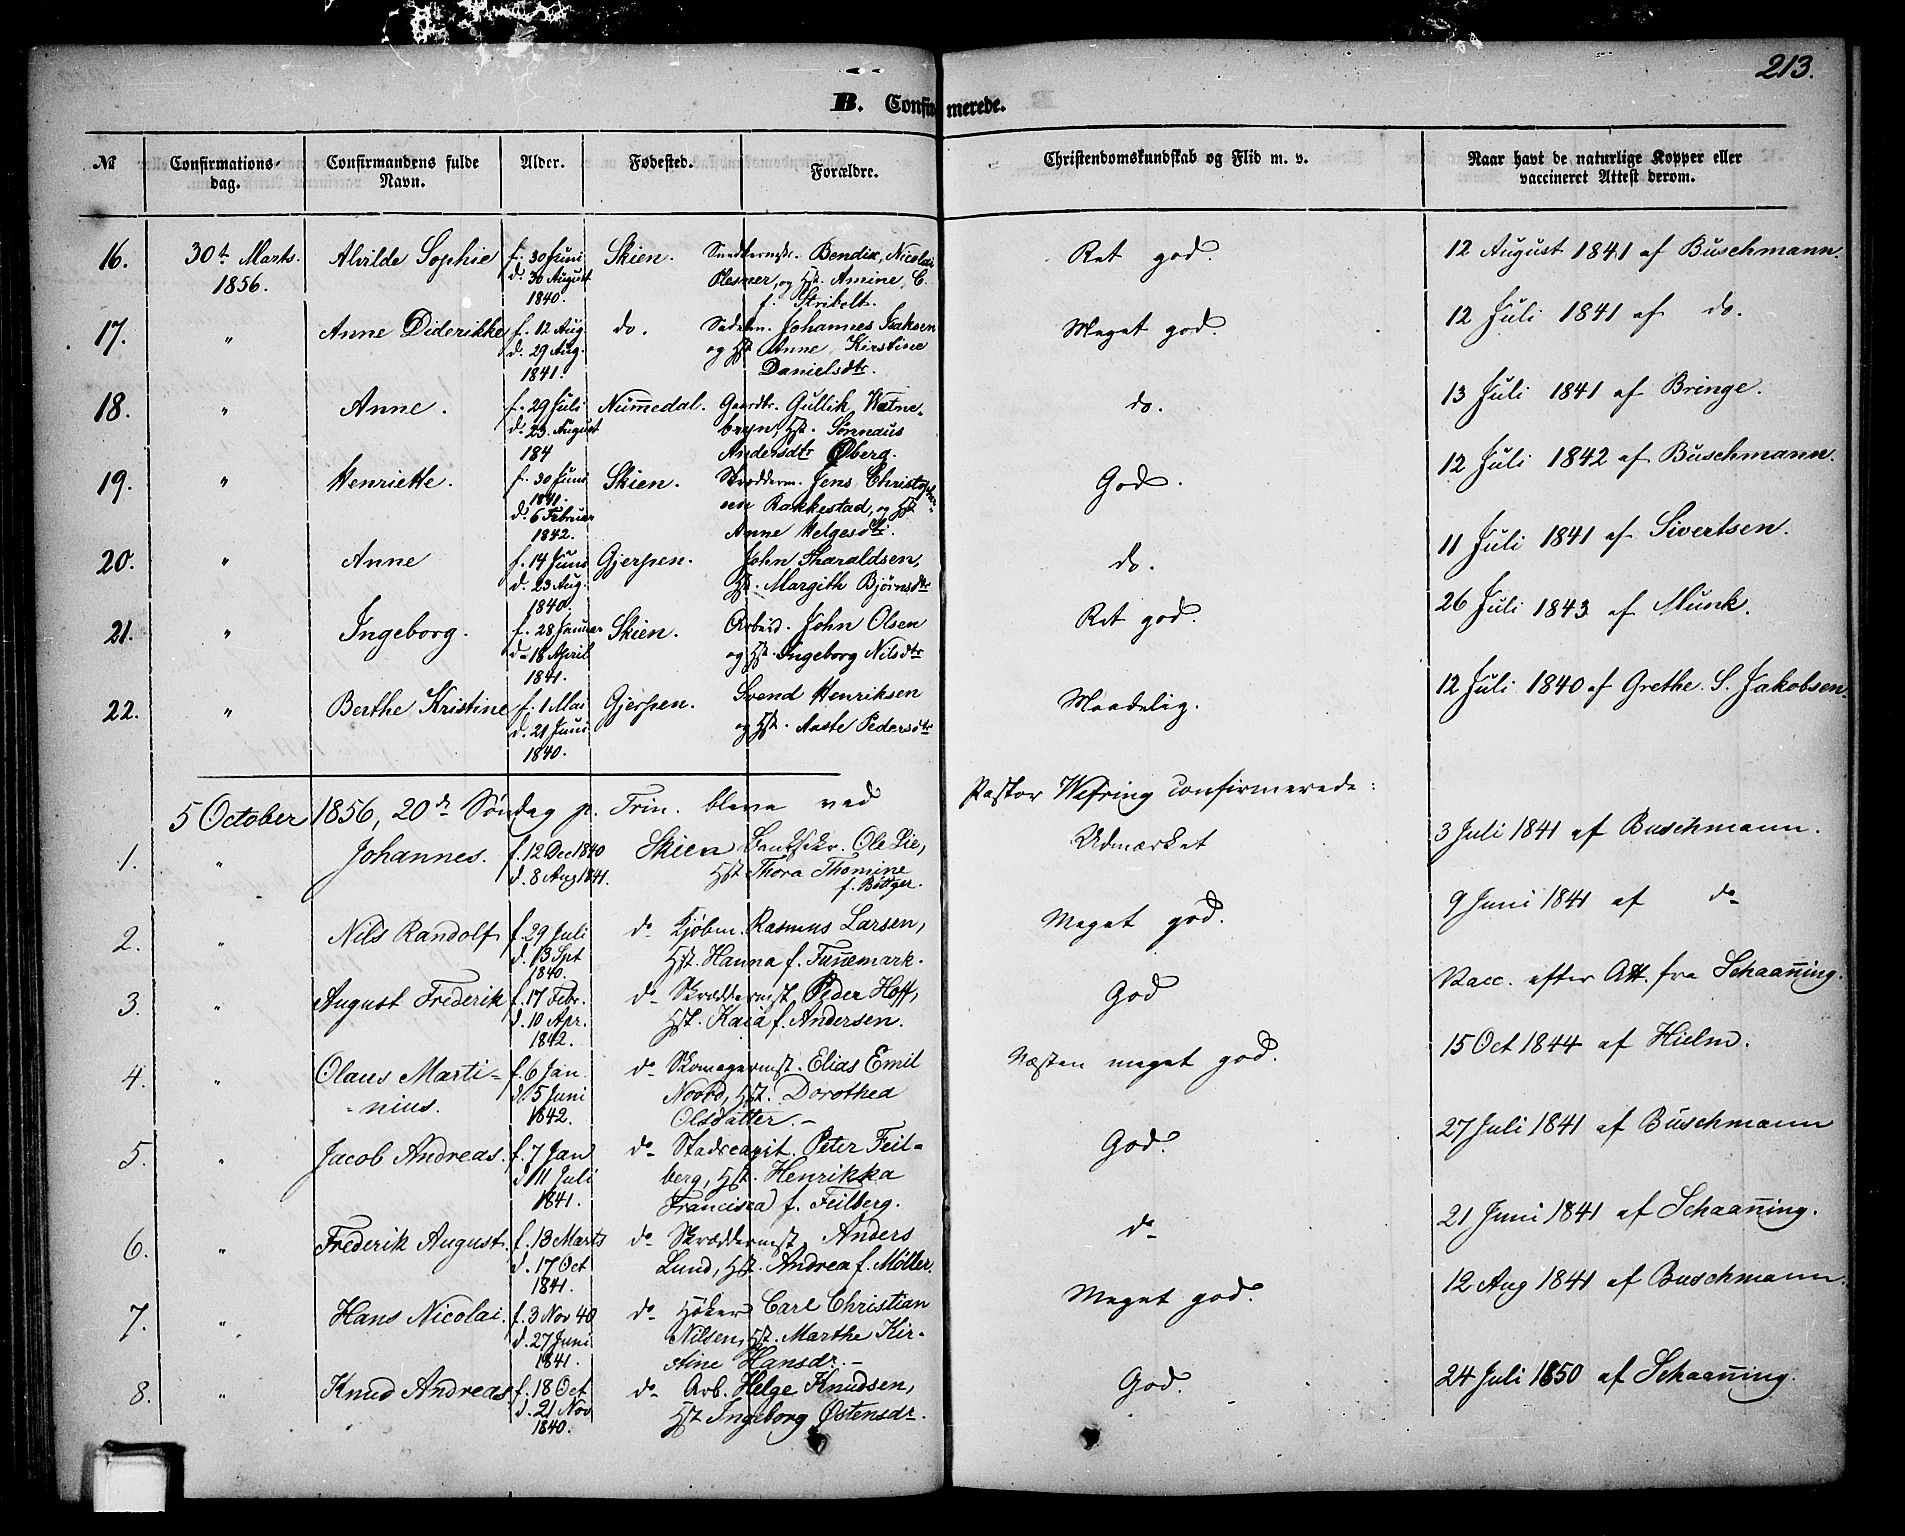 213.
B. Confirmerede.
№ Confirmations-dag. Confirmandens fulde Navn. Alder. Fødested. Forældre. Christendomskundskab og Flid m. v. Naar havt de naturlige Kopper eller vaccineret Attest derom.
16. 30t Marts. Alvilde Sophie f. 30 Juni Skien. Bendix, Nicolai Ret god. 12 August 1841 af Buschmann.
1856. d. 30 August Plesner, og Hst. Amine, C.
1840. f. Stribolt.
17. " Anne Diderikke f. 12 Aug. do. Johannes Isaksen Meget god. 12 Juli 1841 af do.
d. 29 Aug. og Hst Anne Kirstine
1841. Danielsdtr.
18. " Anne. f. 29 Juli Nummedal. Gaardbr. Gullik Do. 13 Juli 1841 af Bringe.
d. 23. August bryn, Hst.
184 Andersdtr Øberg.
19. " Henriette. f. 30 Juni Skien. Skrædderm. Jens Christoph- God. 12 Juli 1842 af Buschmann.
1841. Rakkestad, og Hst
d. 6 Februar Anne Helgesdtr.
1842.
20. " Anne f. 14 Juni Gjerpen. John Tharaldsen, do. 11 Juli 1841 af Sivertsen.
d. 23 Aug. Hst. Margith Bjørnsdtr
1840.
21. " Ingeborg. f. 28 Januar Skien. Arbeid. John Olsen Ret god. 26 Juli 1843 af Munk.
d. 18 April og Hst. Ingeborg Nilsdtr
1841.
22. " Berthe Kristine f. 1 Mai Gjerpen. Svend Henriksen Maadelig. 12 Juli 1840 af Grethe. S. Jakobsen
d. 21 Juni og Hst. Aaste Pedersdtr
1840.
5 October 1856, 20de Søndag p. Trin. bleve ved Pastor Wefring confirmerede:
1. " Johannes. f. 12 Dec 1840 Skien Ole Lie, Udmærket 3 Juli 1841 af Buschmann.
d. 8 Aug 1841. Hst Thora Thomine
f. Bøtger.
2. " Nils Randolf f. 29 Juli do Kjøbm. Rasmus Larsen, Meget god. 9 Juni 1841 af do
d. 13 Spt Hst. Hanna f. Funnemark.
1840.
3. " August Frederik f. 17 Febr. do Skræddermst Peder Hoff, God Vacc. efter Att. fra Schaanning.
d. 10 Apr. Hst. Kaia f. Andersen.
1842.
4. " Olaus Marti- f. 6 Jan do Skomagermst. Elias Emil Næsten meget god. 15 Oct 1844 af Hielm.
-nius. d. 5 Juni Noord, Hst. Dorothea
1842. Olsdatter. -
5. " Jacob Andreas. f. 7 Jan do Stadscapit. Peter Feil- God. 27 Juli 1841 af Buschmann
d 11 Juli berg, Hst. Henrikka
1841. Francisca f. Feilberg.
6. " Frederik August. f. 13 Marts do Skræddermst Anders do 21 Juni 1841 af Schaanning.
d. 17 Oct Lund, Hst. Andrea f. Møller.
1841.
7. " Hans Nicolai. f. 3 Nov 40 do Høker Carl Christian Meget god. 12 Aug 1841 af Buschmann.
d. 27 Juni Nilsen, Hst. Marthe Kir-
1841. stine Hansdr. -
8. " Knud Andreas f. 18 Oct do Arb. Helge Knudsen, God. 24 Juli 1850 af Schaanning.
d. 21 Nov Hst Ingeborg Østensdr.
1840.